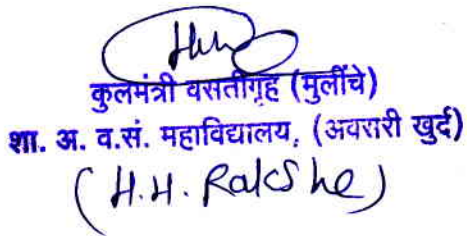 कुलमंत्री वसतीगृह (मुलींचे)
शा. अ. व.सं. महाविद्यालय, (अवसरी खुर्द)
(H.H. Rakshe)